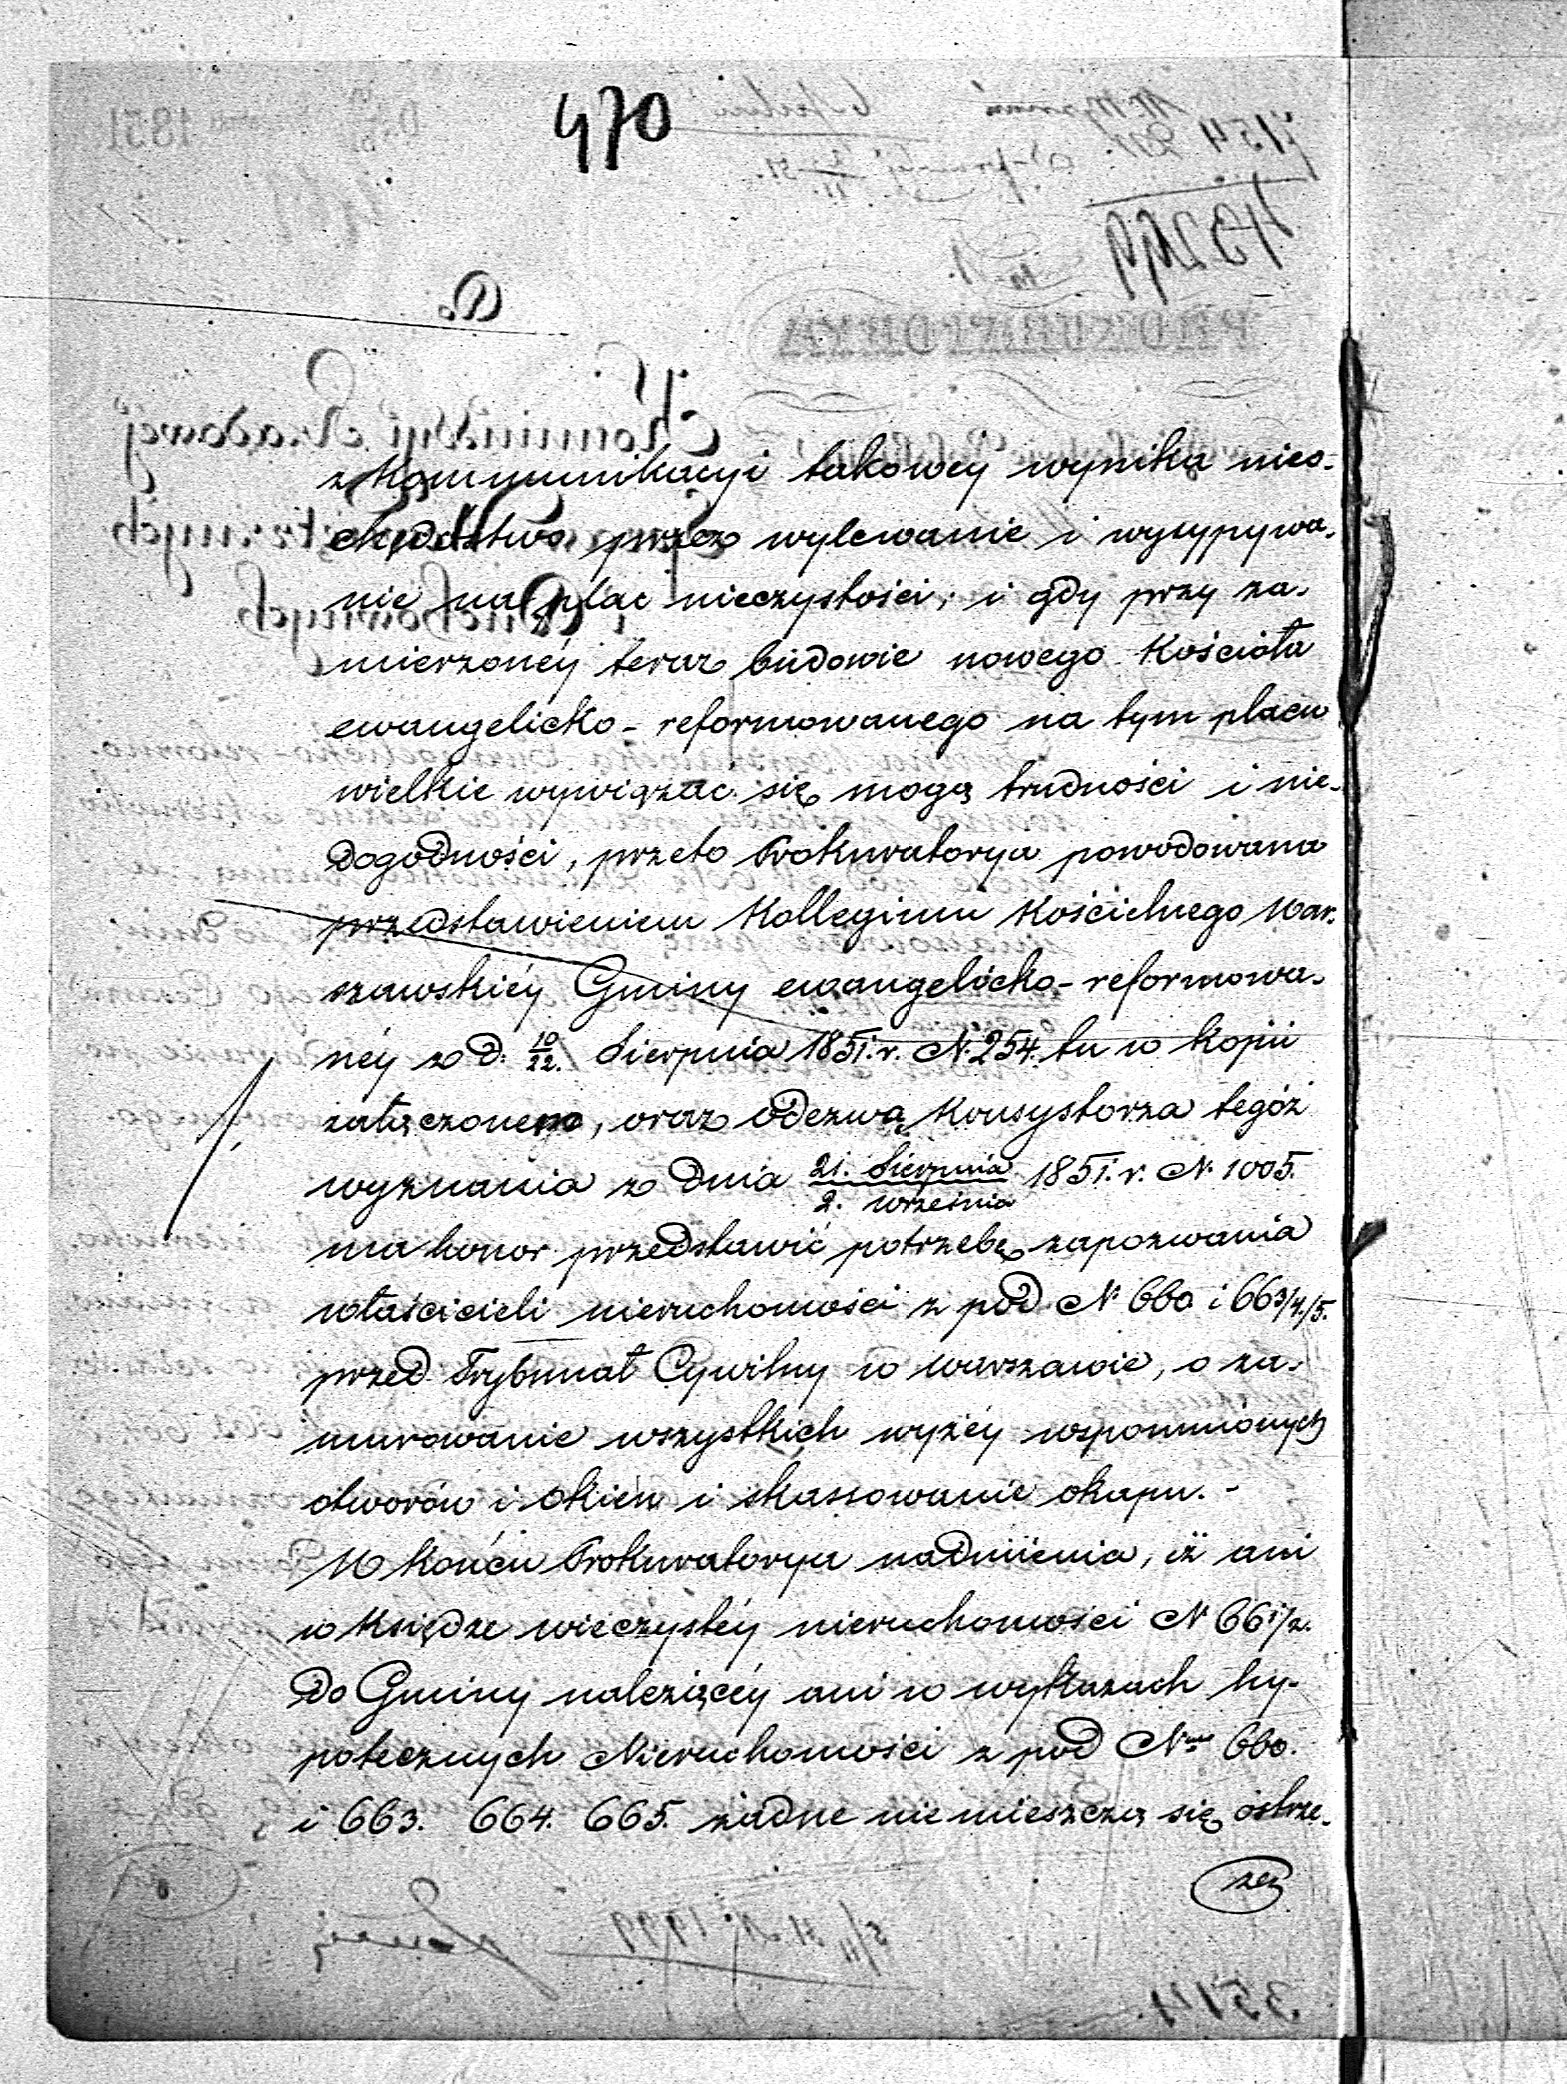 470
z kommunikacyi takowéy wynika nieo-
chędóstwo przez wylewanie i wysypywa-
nie na plac nieczystości, i gdy przy za-
mierzonéy teraz budowie nowego Kościoła
ewangelicko-reformowanego na tym placu
wielkie wywiązać się mogą trudności i nie-
dogodności, przeto Prokuratorya powodowana
przedstawieniem Kollegium Kościelnego War-
szawskiéy Gminy ewangelicko-reformowa-
néy z d. 10/22. Sierpnia 1851. r. N. 254. tu w kopii
załączonem, oraz odezwą Konsystorza tegóż
wyznania z dnia 21. Sierpnia/2. września 1851. r. N. 1005.
ma honor przedstawić potrzebę zapozwania
właścicieli nieruchomości z pod N. 660 i 663/4/5.
przed Trybunał Cywilny w Warszawie, o za-
murowanie wszystkich wyżéy wspomnionych
otworów i okien i skassowanie okapu. -
W końcu Prokuratorya nadmienia, iż ani
w Księdze wieczystéy nieruchomości N 661/2.
do Gminy należącéy ani w wykazach hy-
potecznych Nieruchomości z pod Nrm 660.
i 663. 664. 665. żadne nie mieszczą się ostrze-
że